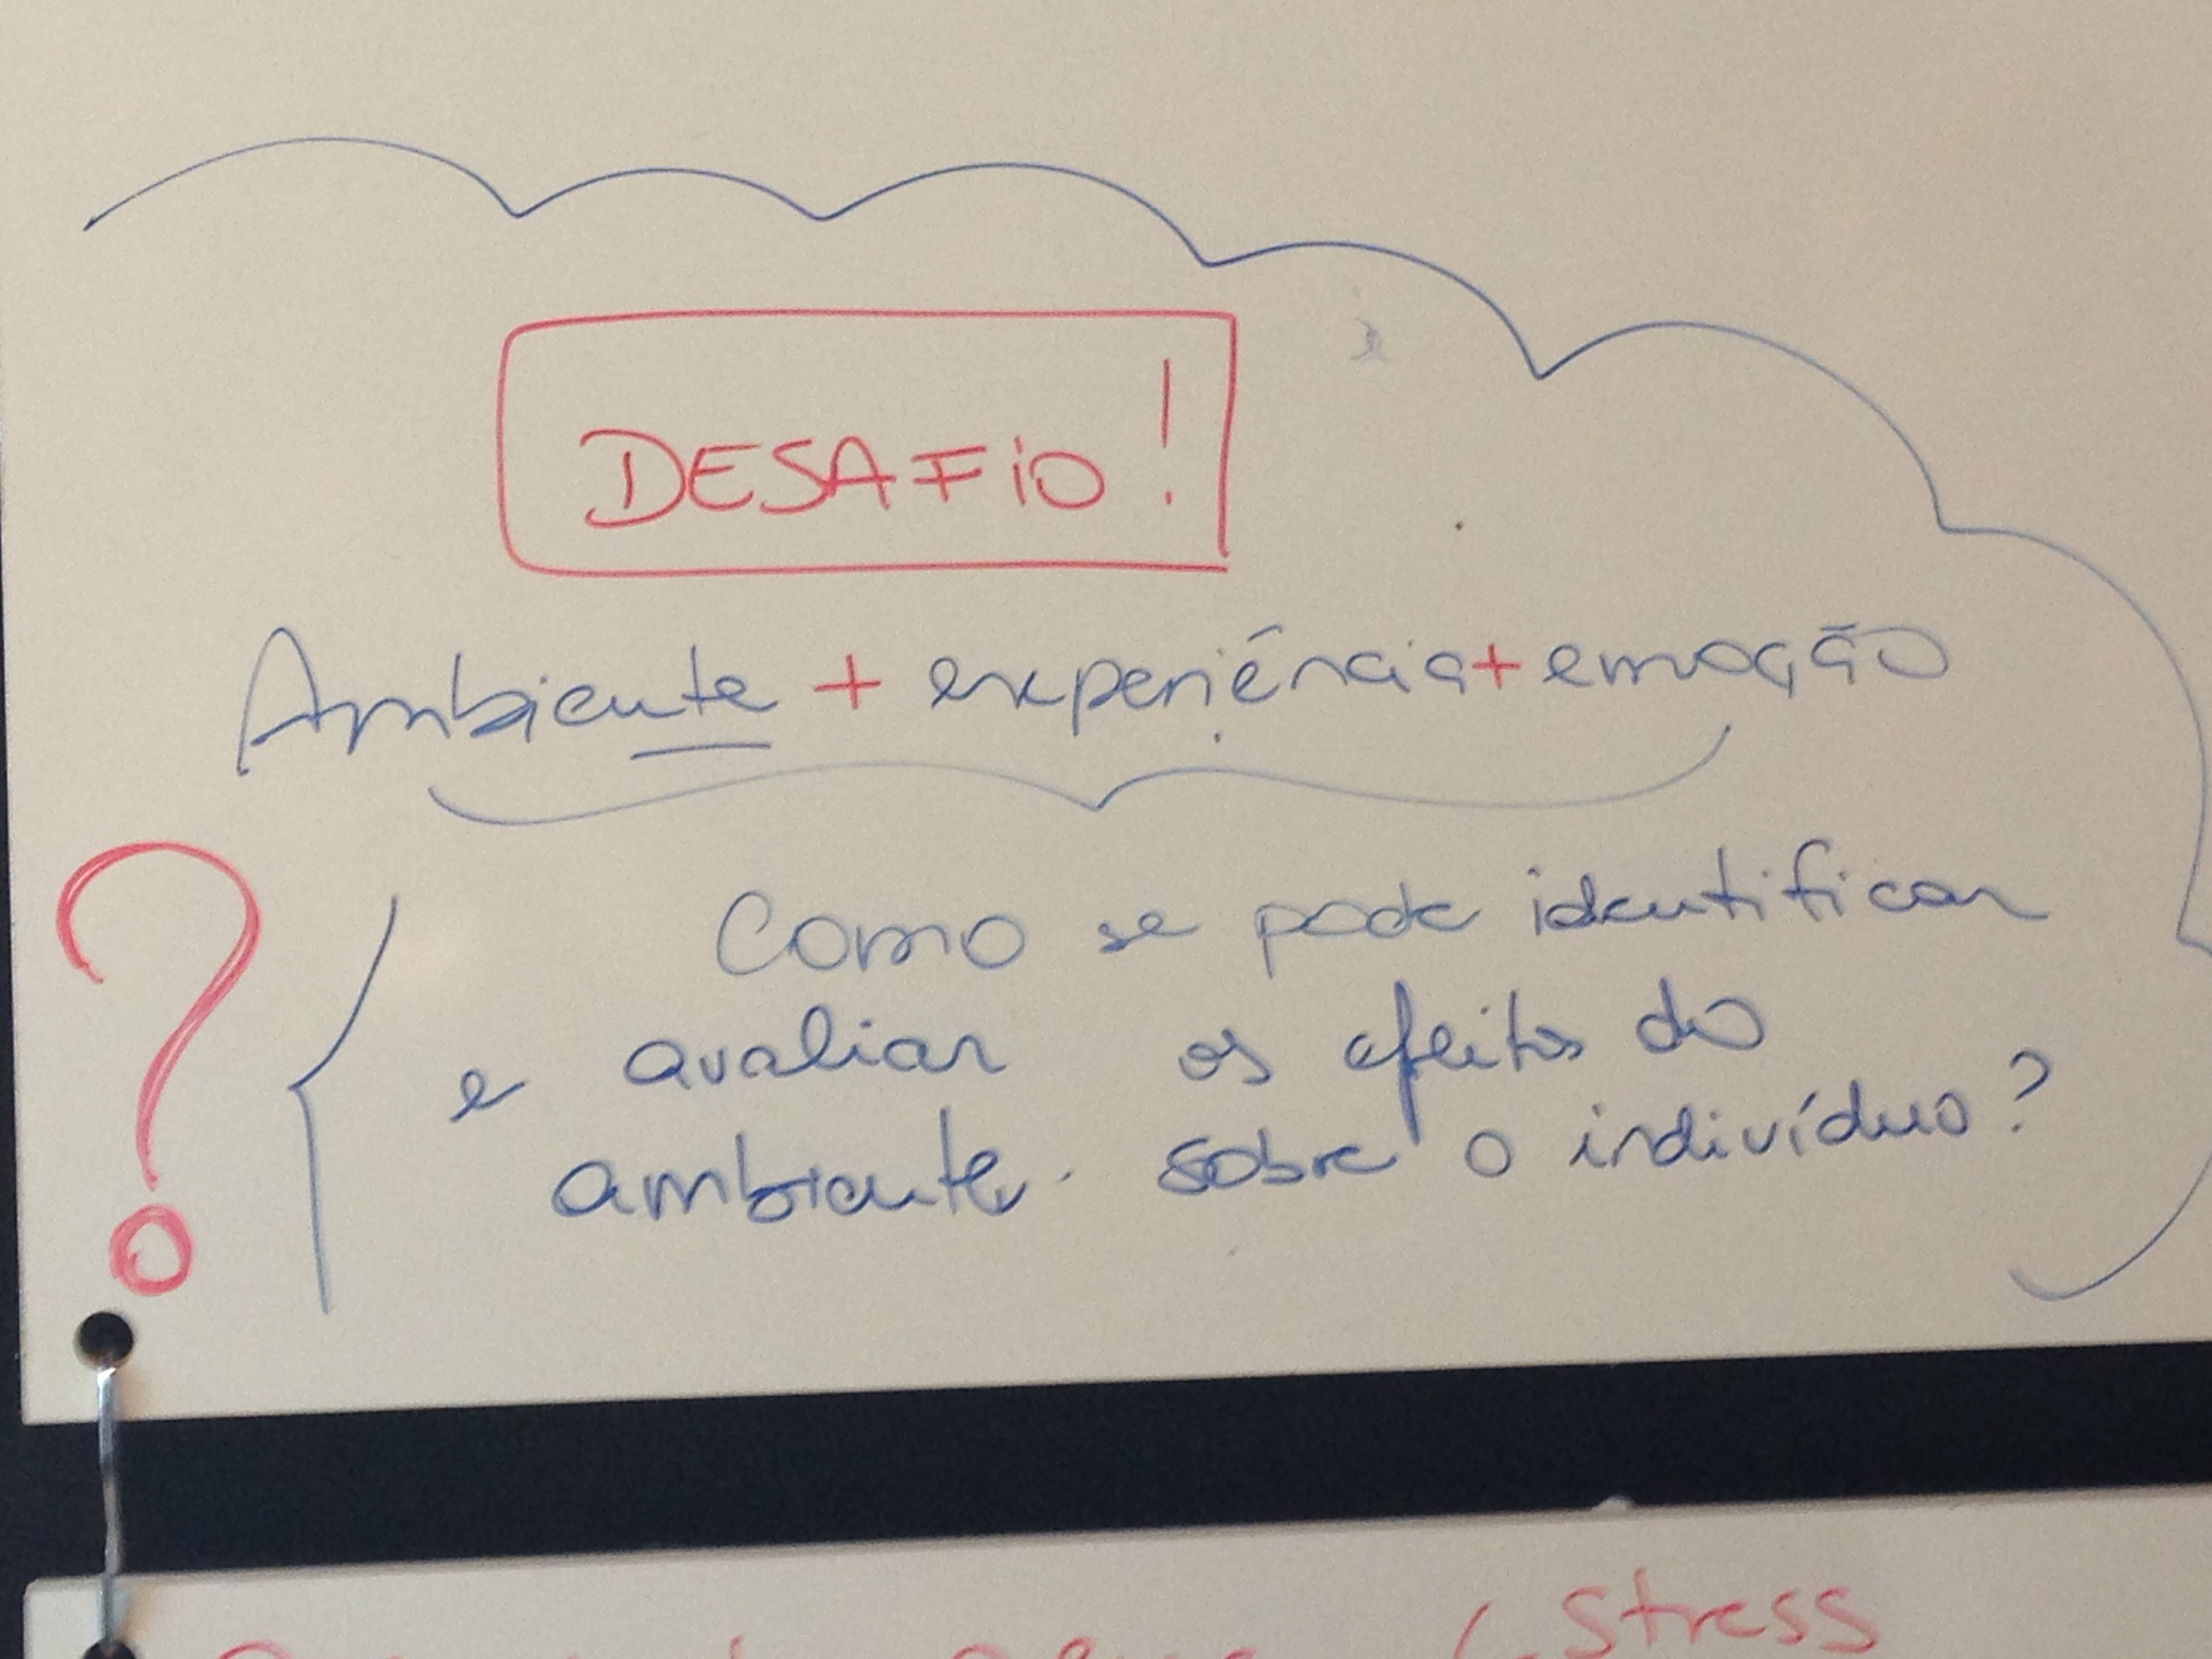 DESAFIO!
Ambiente + experiência + emoção
? Como se pode identificar
e avaliar os efeitos do
ambiente. sobre o indivíduo?
stress